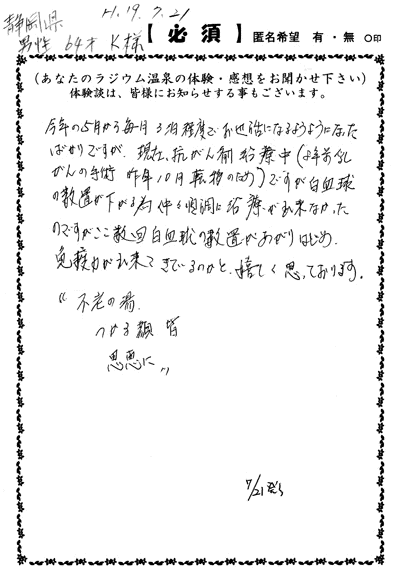 静岡県 H.19.7.21
男性 64才 K様
【必須】 匿名希望 有・無 ○印
(あなたのラジウム温泉の体験・感想をお聞かせ下さい)
体験談は、皆様にお知らせする事もございます。
今年の5月から毎月3泊程度でお世話になるようになった
ばかりですが、現在、抗がん剤治療中(
がんの手術 昨年10月転移のため)ですが白血球
の数置が下がる為 仲々順調に治療が出来なかった
のですがここ数回白血球の数置があがりはじめ、
免疫力が出来てきているのかと、嬉しく思っております。
"不老の湯
つかる顔 皆
恵に"
7/21